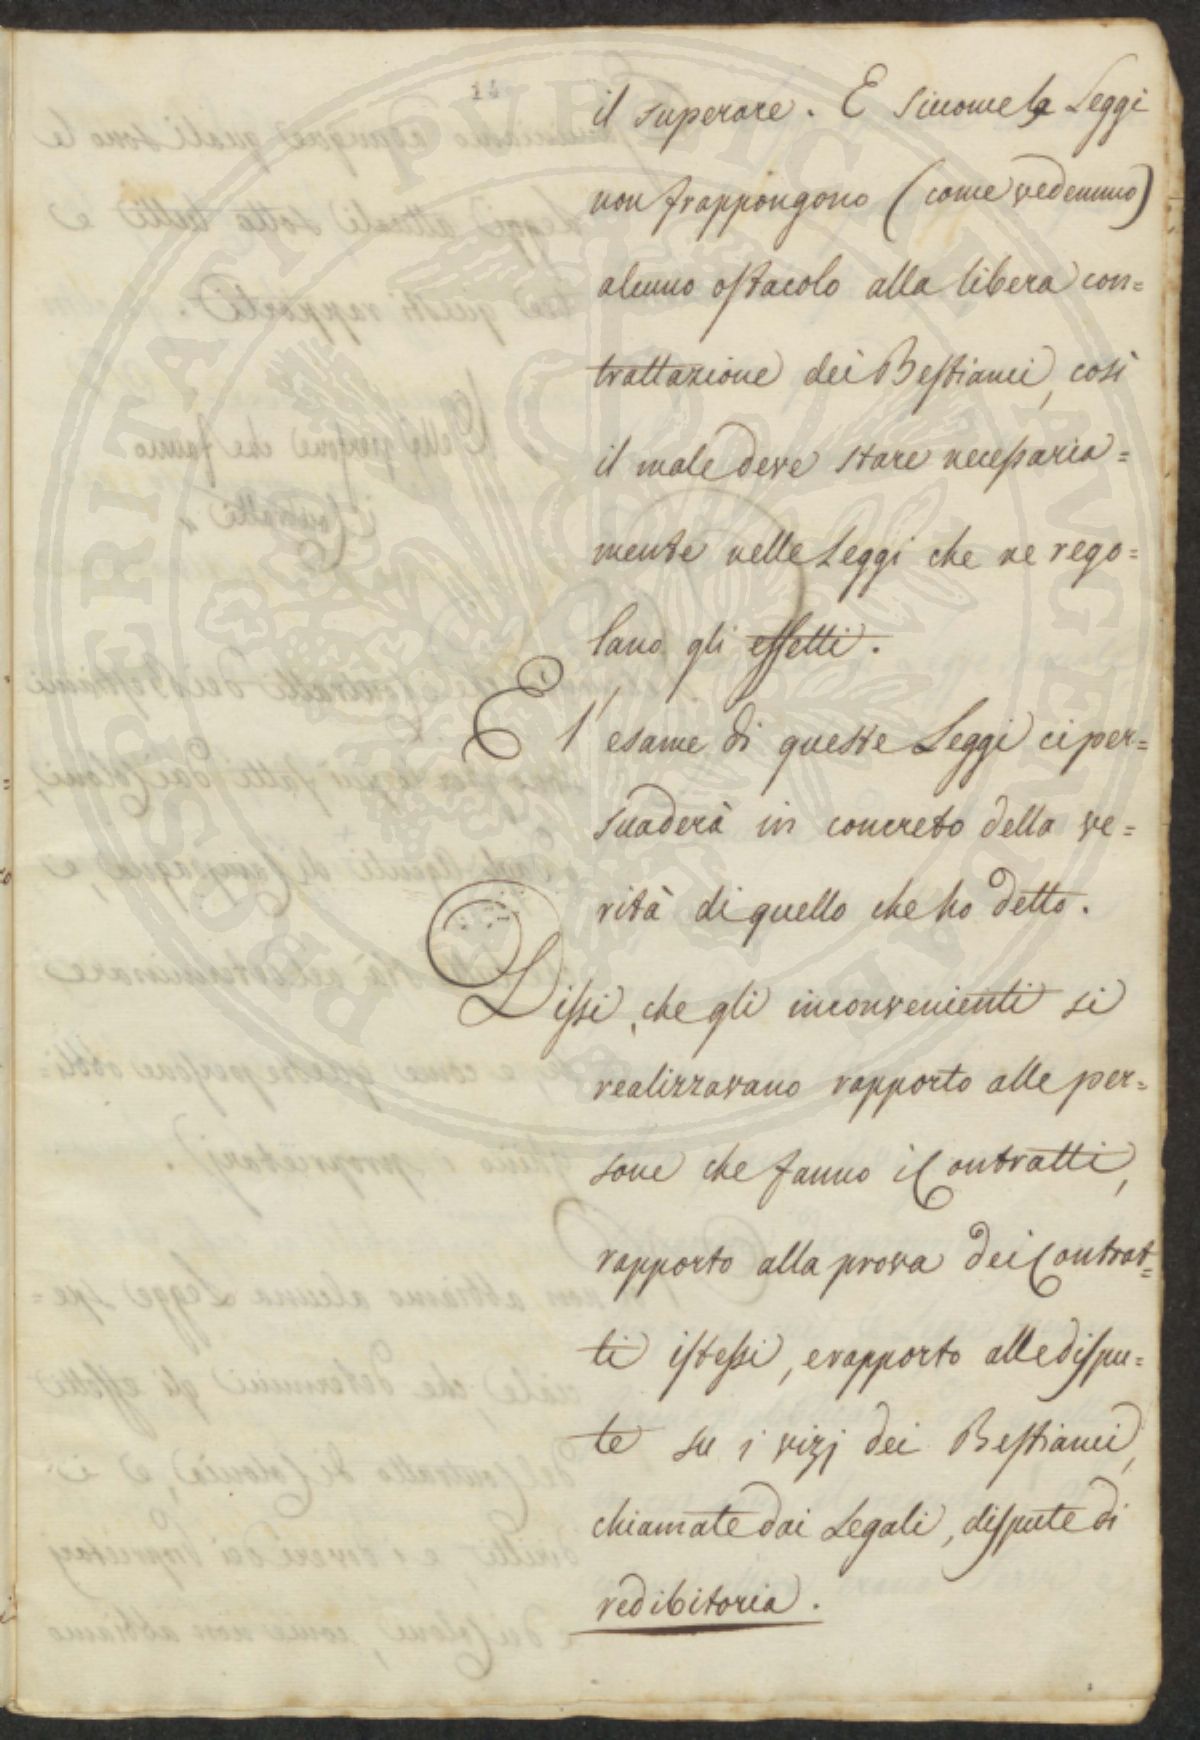 14
il superare. E siccome le Leggi
non frappongono (come vedemmo)
alcuno ostacolo alla libera con=
trattazione dei Bestiami, così
il male deve stare necessaria=
mente nelle Leggi che ne rego=
lano gli effetti.
E l'esame di queste Leggi ci per=
suaderà in concreto della ve=
rità di quello che ho detto.
Dissi, che gli inconvenienti si
realizzavano rapporto alle per=
sone che fanno i Contratti,
rapporto alla prova dei Contrat=
ti istessi, e rapporto alle dispu=
te su i vizj dei Bestiami,
chiamate dai Legali, dispute di
redibitoria.